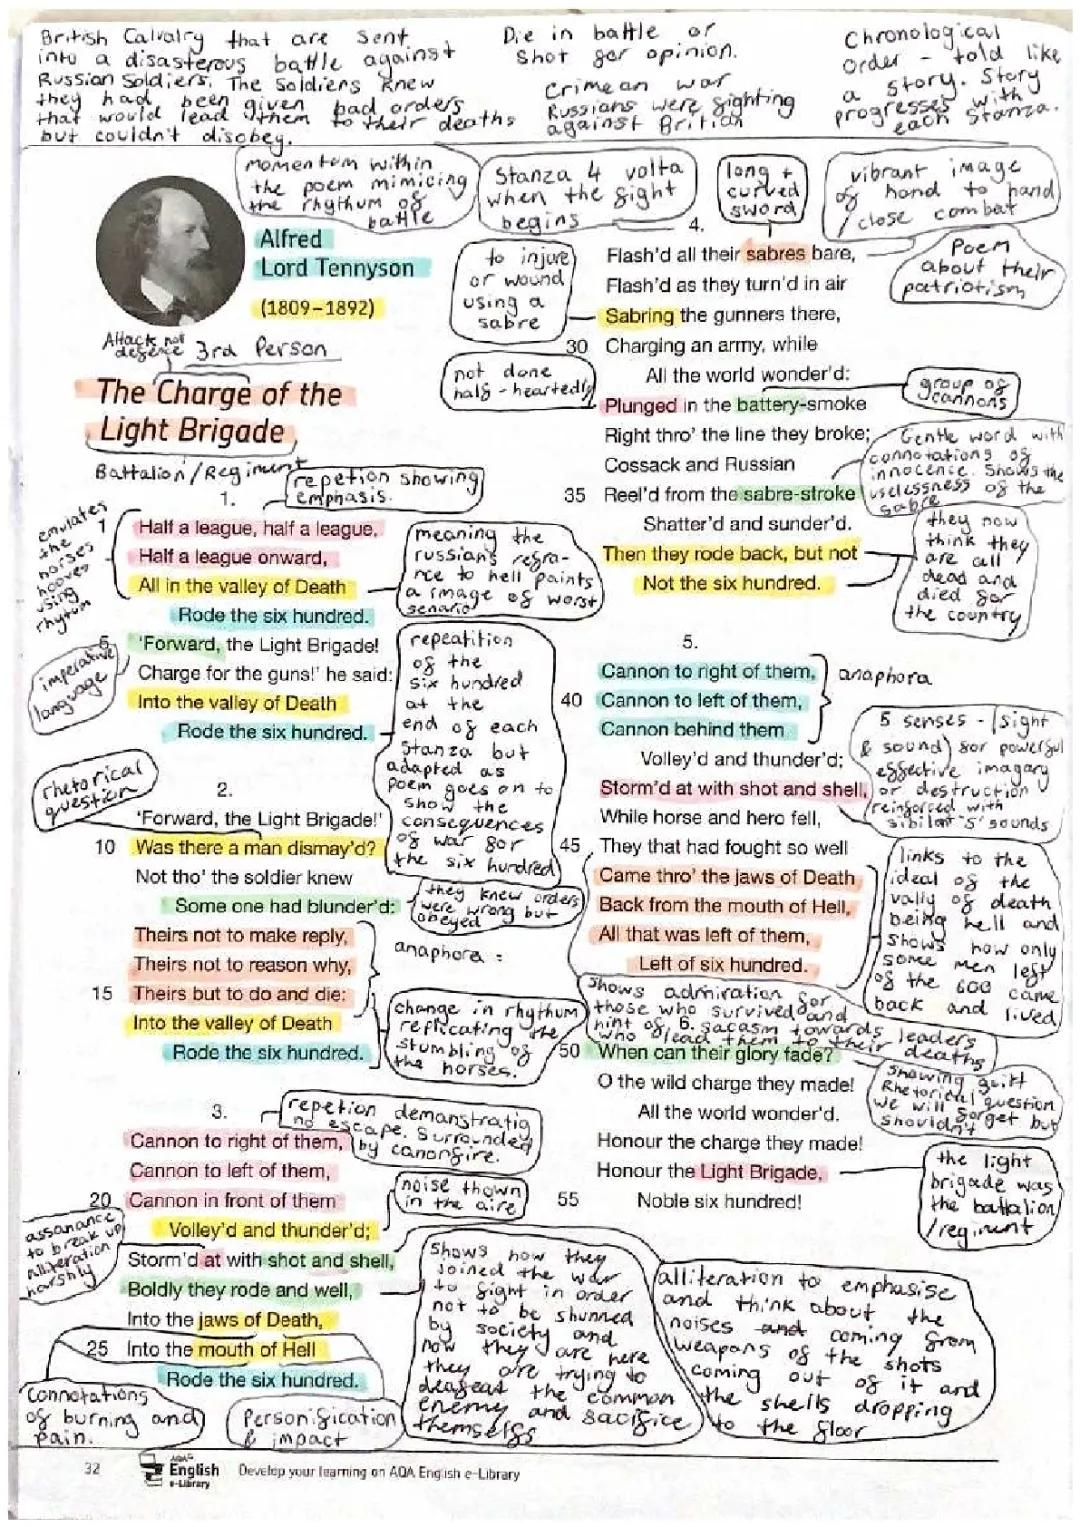 British Calvalry that are sent
into a disasterous battle against
Russian Soldiers. The Soldiers knew
they had been given bad orders
that would lead them to their deaths
but couldn't disobey.
Die in battle or
Shot for opinion.
Crimean war
Russians were fighting
against British
Chronological
order - told like
a story. Story
progresses with
each Stanza.
momentum within
the poem mimicing
the rhythum of
battle
Stanza 4 volta
when the fight
begins
long +
curved
sword
vibrant image
of hand to hand
/close combat
Alfred
Lord Tennyson
(1809–1892)
Attack not
defence
3rd Person
The Charge of the
Light Brigade
Battalion/Regiment
repetion showing
emphasis.
1.
emulates
the
horses
hooves
using
rhytum
1 Half a league, half a league,
Half a league onward,
All in the valley of Death
Rode the six hundred.
meaning the
russians refra-
nce to hell paints
a image of worst
senario
5 'Forward, the Light Brigade!
Charge for the guns!' he said:
Into the valley of Death
Rode the six hundred.
imperative
language
repeatition
of the
six hundred
at the
end of each
Stanza but
adapted as
poem goes on to
show the
consequences
of war for
the six hundred
rhetorical
question
2.
'Forward, the Light Brigade!'
10 Was there a man dismay'd?
Not tho' the soldier knew
Some one had blunder'd:
they knew orders
were wrong but
obeyed
Theirs not to make reply,
Theirs not to reason why,
15 Theirs but to do and die:
Into the valley of Death
Rode the six hundred.
anaphora :
change in rhythum
replicating the
stumbling of
the horses.
3.
repetion demanstratig
no escape. Surrounded
by canonfire.
Cannon to right of them,
Cannon to left of them,
20 Cannon in front of them
Volley'd and thunder'd;
noise thown
in the aire
Storm'd at with shot and shell,
Boldly they rode and well,
Into the jaws of Death,
25 Into the mouth of Hell
Rode the six hundred.
assanance
to break up
alliteration
harshly
Connotations
of burning and
pain.
Personification
& impact
shows how they
joined the war
to fight in order
not to be shunned
by society and
now they are here
they are trying to
deafeat the common
enemy and sacrifice
themselfs
alliteration to emphasise
and think about the
noises and coming from
weapons of the shots
coming out of it and
the shells dropping
to the floor
4.
Flash'd all their sabres bare,
Flash'd as they turn'd in air
Sabring the gunners there,
30 Charging an army, while
All the world wonder'd:
Plunged in the battery-smoke
Right thro' the line they broke;
Cossack and Russian
35 Reel'd from the sabre-stroke
Shatter'd and sunder'd.
Then they rode back, but not
Not the six hundred.
to injure
or wound
using a
sabre
Poem
about their
patriotism
not done
half-heartedly
group of
cannons
Gentle word with
connotations of
innocence. Shows the
uselessness of the
sabre
they now
think they
are all
dead and
died for
the country
5.
Cannon to right of them,
40 Cannon to left of them,
Cannon behind them
Volley'd and thunder'd;
Storm'd at with shot and shell,
While horse and hero fell,
45 They that had fought so well
Came thro' the jaws of Death
Back from the mouth of Hell,
All that was left of them,
Left of six hundred.
anaphora
5 senses - sight
& sound) for powerful
effective imagary
or destruction
/reinforced with
sibilant 's' sounds
links to the
ideal of the
vally of death
being hell and
shows how only
some men left
of the 600 came
back and lived
shows admiration for
those who survived and
hint of 6. sacasm towards leaders
who lead them to their deaths
50 When can their glory fade?
O the wild charge they made!
All the world wonder'd.
Honour the charge they made!
Honour the Light Brigade,
55 Noble six hundred!
showing guilt
Rhetorical question
we will forget but
shouldn't
the light
brigade was
the battalion
/regiment
32
AQA
English
e-Library
Develop your learning on AQA English e-Library